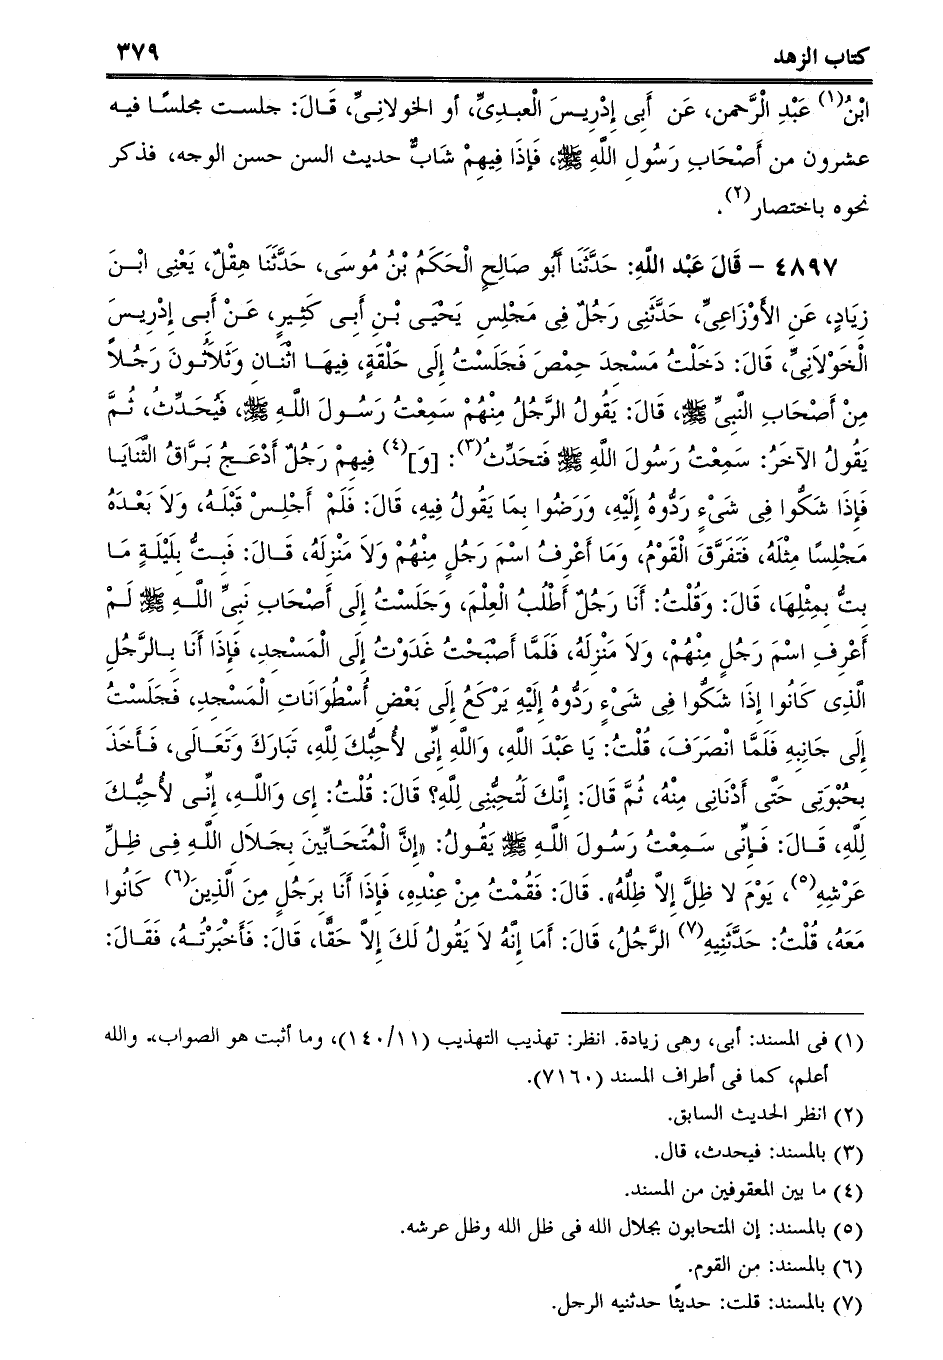 كتاب الزهد ٣٧٩
ابْنُ(١) عَبْدِ الْرَّحمن، عَن أَبِى إِدْرِيسَ الْعبدِىِّ، أو الخولانِىِّ، قَالَ: جلست مجلسًا فيه
عشرون من أَصْحَابِ رَسُولِ اللَّهِ ﷺ، فَإِذَا فِيهِمْ شَابٌّ حديث السن حسن الوجه، فذكر
نحوه باختصار(٢).
٤٨٩٧ – قَالَ عَبْد اللَّهِ: حَدَّثَنَا أَبُو صَالِحٍ الْحَكَمُ بْنُ مُوسَى، حَدَّثَنَا هِقْلٌ، يَعْنِى ابْنَ
زِيَادٍ، عَنِ الأَوْزَاعِىِّ، حَدَّثَنِى رَجُلٌ فِى مَجْلِسِ يَحْيَى بْنِ أَبِى كَثِيرٍ، عَنْ أَبِى إِدْرِيسَ
الْخَوْلاَنِىِّ، قَالَ: دَخَلْتُ مَسْجِدَ حِمْصَ فَجَلَسْتُ إِلَى حَلْقَةٍ، فِيهَا اثْنَانِ وَثَلاَثُونَ رَجُلاً
مِنْ أَصْحَابِ النَّبِىِّ ﷺ، قَالَ: يَقُولُ الرَّجُلُ مِنْهُمْ سَمِعْتُ رَسُولَ اللَّهِ ﷺ، فَيُحَدِّثُ، ثُمَّ
يَقُولُ الآخَرُ: سَمِعْتُ رَسُولَ اللَّهِ ﷺ فَتحَدِّثُ(٣): [وَ](٤) فِيهِمْ رَجُلٌ أَدْعَجُ بَرَّاقُ الثَّنَايَا
فَإِذَا شَكُّوا فِى شَىْءٍ رَدُّوهُ إِلَيْهِ، وَرَضُوا بِمَا يَقُولُ فِيهِ، قَالَ: فَلَمْ أَجْلِسْ قَبْلَهُ، وَلاَ بَعْدَهُ
مَجْلِسًا مِثْلَهُ، فَتَفَرَّقَ الْقَوْمُ، وَمَا أَعْرِفُ اسْمَ رَجُلٍ مِنْهُمْ وَلاَ مَنْزِلَهُ، قَالَ: فَبِتُّ بِلَيْلَةٍ مَا
بِتُّ بِمِثْلِهَا، قَالَ: وَقُلْتُ: أَنَا رَجُلٌ أَطْلُبُ الْعِلْمَ، وَجَلَسْتُ إِلَى أَصْحَابِ نَبِىِّ اللَّهِ ﷺ لَمْ
أَعْرِفِ اسْمَ رَجُلٍ مِنْهُمْ، وَلاَ مَنْزِلَهُ، فَلَمَّا أَصْبَحْتُ غَدَوْتُ إِلَى الْمَسْجِدِ، فَإِذَا أَنَا بِالرَّجُلِ
الَّذِى كَانُوا إِذَا شَكُّوا فِى شَىْءٍ رَدُّوهُ إِلَيْهِ يَرْكَعُ إِلَى بَعْضِ أُسْطُوَانَاتِ الْمَسْجِدِ، فَجَلَسْتُ
إِلَى جَانِبِهِ فَلَمَّا انْصَرَفَ، قُلْتُ: يَا عَبْدَ اللَّهِ، وَاللَّهِ إِنِّى لأُحِبُّكَ لِلَّهِ، تَبَارَكَ وَتَعَالَى، فَأَخَذَ
بِحُبْوَتِى حَتَّى أَدْنَانِى مِنْهُ، ثُمَّ قَالَ: إِنَّكَ لَتُحِبُّنِى لِلَّهِ؟ قَالَ: قُلْتُ: إِى وَاللَّهِ، إِنِّى لأُحِبُّكَ
لِلَّهِ، قَالَ: فَإِنِّى سَمِعْتُ رَسُولَ اللَّهِ ﷺ يَقُولُ: «إِنَّ الْمُتَحَابِّينَ بِجَلاَلِ اللَّهِ فِى ظِلِّ
عَرْشِهِ(٥)، يَوْمَ لا ظِلَّ إِلاَّ ظِلُّهُ». قَالَ: فَقُمْتُ مِنْ عِنْدِهِ، فَإِذَا أَنَا بِرَجُلٍ مِنَ الَّذِينَ(٦) كَانُوا
مَعَهُ، قُلْتُ: حَدَّثَنِيهِ(٧) الرَّجُلُ، قَالَ: أَمَا إِنَّهُ لاَ يَقُولُ لَكَ إِلاَّ حَقًّا، قَالَ: فَأَخْبَرْتُهُ، فَقَالَ:
(١) فى المسند: أبى، وهى زيادة. انظر: تهذيب التهذيب (١٤٠/١١)، وما أثبت هو الصواب،. والله
أعلم، كما فى أطراف المسند (٧١٦٠).
(٢) انظر الحديث السابق.
(٣) بالمسند: فيحدث، قال.
(٤) ما بين المعقوفين من المسند.
(٥) بالمسند: إن المتحابون بجلال الله فى ظل الله وظل عرشه.
(٦) بالمسند: من القوم.
(٧) بالمسند: قلت: حديثًا حدثنيه الرجل.